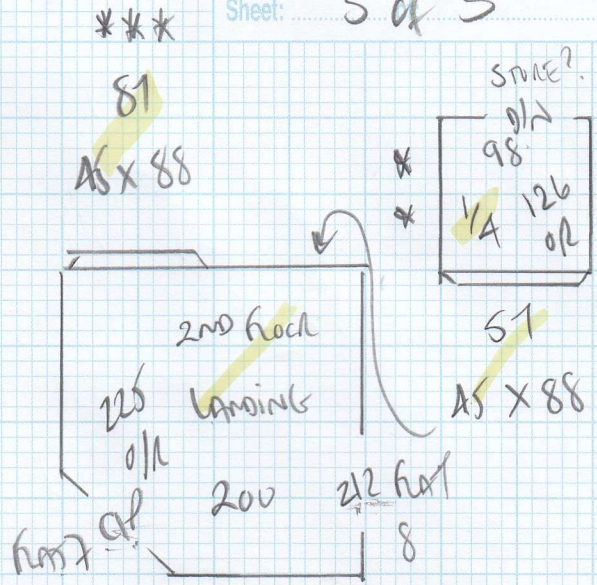 Sheet: 5 of 5
***
81
45 X 88
STORE?
D/N
98
*
*
1/4 126
O/R
57
45 X 88
2ND FLOOR
LANDING
225
O/R
200
212 FLAT
8
FLAT 7